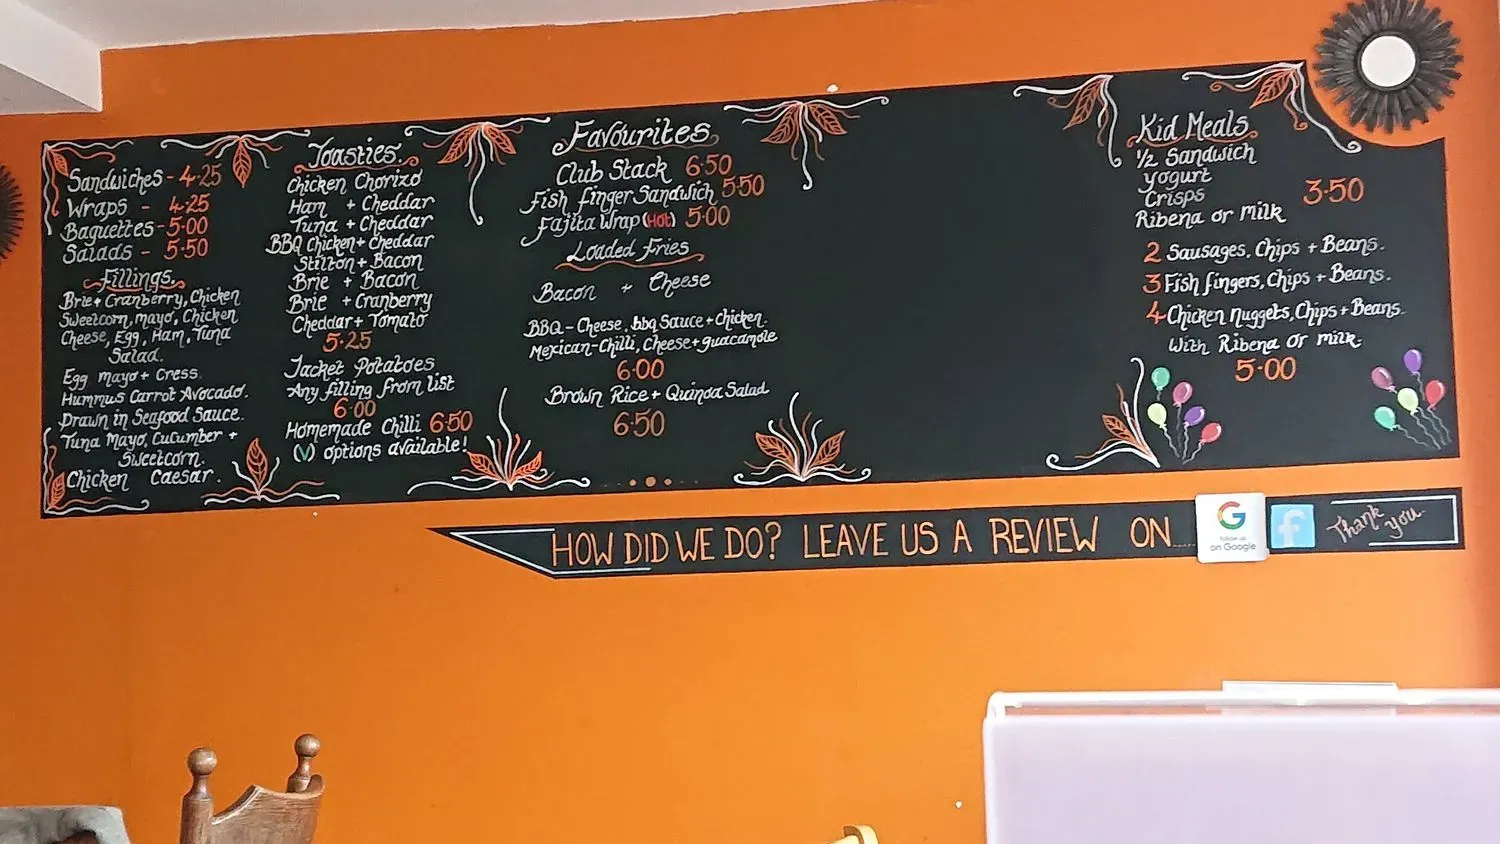 Sandwiches - 4.25
Wraps - 4.25
Baguettes - 5.00
Salads - 5.50
Fillings.
Brie + Cranberry, Chicken
Sweetcorn, mayo, Chicken
Cheese, Egg, Ham, Tuna
Salad.
Egg mayo + Cress
Hummus Carrot Avocado.
Prawn in Seafood Sauce.
Tuna Mayo, Cucumber +
Sweetcorn.
Chicken Caesar.
Toasties.
Chicken Chorizo
Ham + Cheddar
Tuna + Cheddar
BBQ Chicken + Cheddar
Stilton + Bacon
Brie + Bacon
Brie + Cranberry
Cheddar + Tomato
5.25
Jacket Potatoes
Any filling from list
6.00
Homemade Chilli 6.50
(V) options available!
Favourites
Club Stack 6.50
Fish finger Sandwich 5.50
Fajita Wrap (Hot) 5.00
Loaded Fries
Bacon + Cheese
BBQ - Cheese, bbq Sauce + chicken.
Mexican - Chilli, Cheese + guacamole
6.00
Brown Rice + Quinoa Salad
6.50
Kid Meals
1/2 Sandwich
yogurt
Crisps
3.50
Ribena or Milk
2 Sausages, Chips + Beans.
3 Fish fingers, Chips + Beans.
4 Chicken Nuggets, Chips + Beans.
With Ribena or milk.
5.00
HOW DID WE DO? LEAVE US A REVIEW ON....
G
follow us
on Google
f
Thank
you.